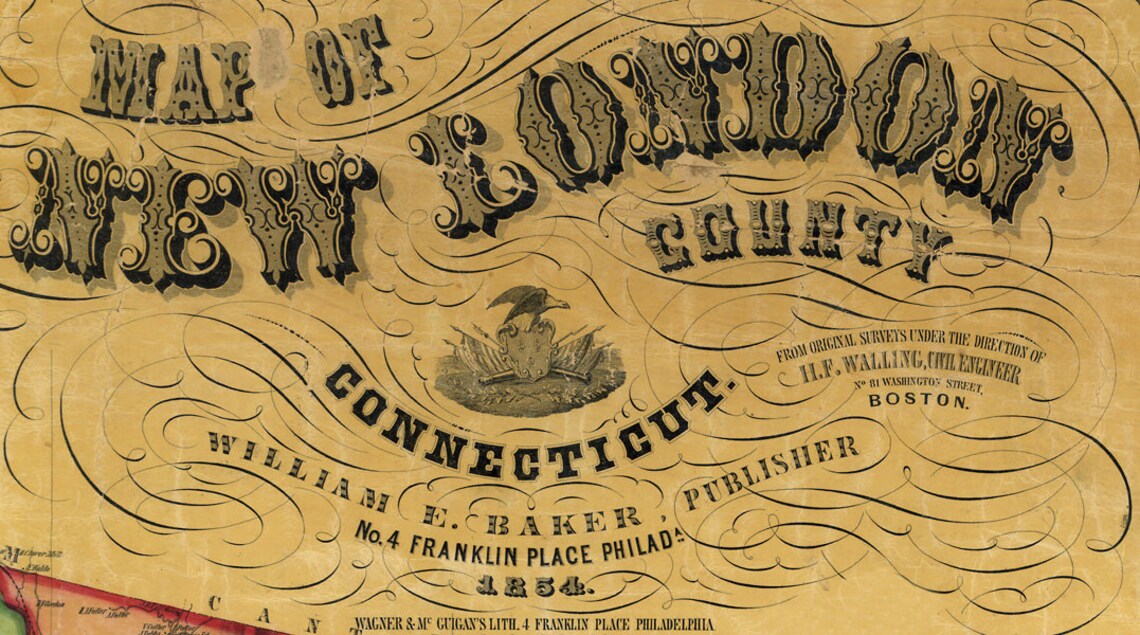 MAP OF
NEW LONDON,
COUNTY
CONNECTICUT.
FROM ORIGINAL SURVEYS UNDER THE DIRECTION OF
H.F. WALLING, CIVIL ENGINEER
No 81 WASHINGTON STREET,
BOSTON.
WILLIAM E. BAKER, PUBLISHER
No. 4 FRANKLIN PLACE PHILADA
1854.
WAGNER & Mc GUIGAN'S LITH. 4 FRANKLIN PLACE PHILADELPHIA
M
C A N T